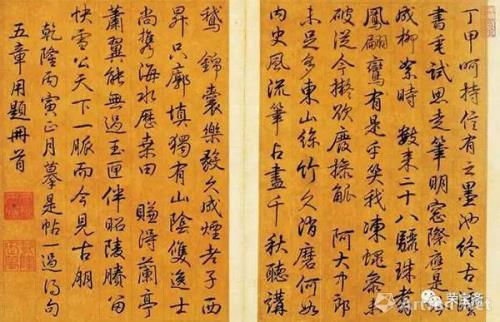 丁甲呵持信有之墨池終古瑩
書帷試思走筆明窗際應是
成柳絮時 數來二十八驪珠翥
鳳翩鸞有是乎笑我凍蠅未
破從今擬欲廢操觚 阿大中郎
未足多東山絲竹久消磨何如
內史風流筆占盡千秋聽講
鵞 錦囊樂毅久成煙老子西
昇只廓填獨有山陰雙逸士
尚携海水歷桑田 賺得蘭亭
蕭翼能無過玉匣伴昭陵賸留
快雪公天下一脈而今見古朋
乾隆丙寅正月摹是帖一過得句
五章用題冊首
荣宝斋